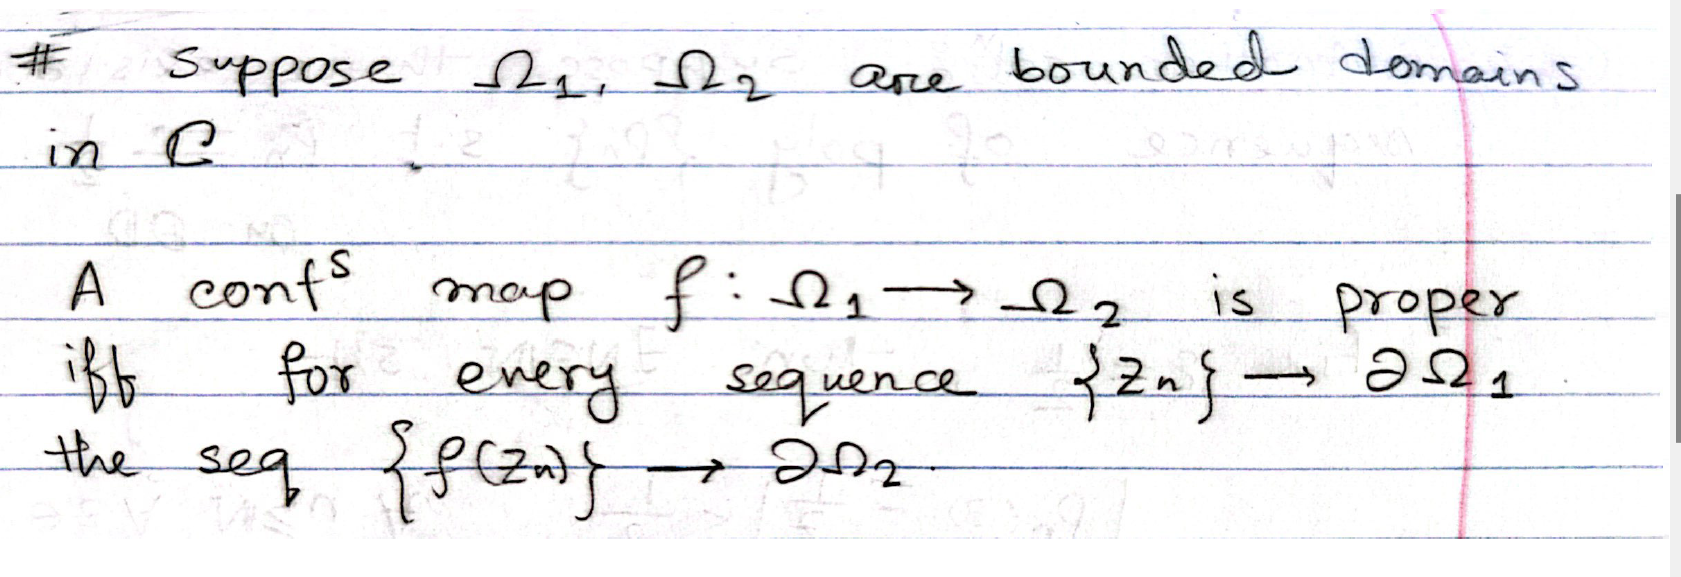 # Suppose Ω₁, Ω₂ are bounded domains
in ℂ.
A contˢ map f : Ω₁ → Ω₂ is proper
iff for every sequence {zₙ} → ∂Ω₁
the seq {f(zₙ)} → ∂Ω₂.